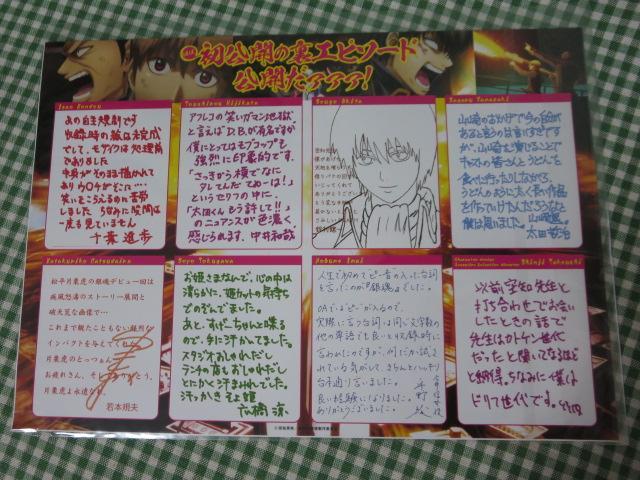 初公開の裏エピソード
公開だァァァ!
Isao Kondou
あの自主規制です
収録時の絵は未完成
でして、モザイクは処理前
でありました
中身がそのまま描かれて
笑いをこらえるのに苦労
しました ちなみに股間は
一度も見ていません
千葉進歩
Toushirou Hijikata
アフレコの笑いガマン地獄
と言えばD.B.が有名ですが
僕にとってはモブコップも
強烈に印象的です。
「さっきから横でなに
タレてんだてめーは!」
というセリフの中に、
「太田くんもう許して!!」
のニュアンスが色濃く
感じられます。中井和哉
Sougo Okita
Sagaru Yamazaki
山崎のおかげで今の自分が
あると言うのは言いすぎです
が、山崎を演じることで
キャストの皆さんとうどんを
食べに行ったりしながら、
うどんのように太く長い作品
を作っていけたんだろうなと
僕は思いました。山崎退
太田哲治
Katakuriko Matsudaira
松平片栗虎の銀魂デビュー回は
疾風怒濤のストーリー展開と
破天荒な画像で…
これまで観たこともない強烈な
インパクトを与えてくれた
片栗虎のとっつぁん
お疲れさん、そしてありがとう、
片栗虎よ永遠なれ
若本規夫
Soyo Tokugawa
お姫さまなんで、心の中は
清らかに、姫カットの気持ち
でのぞんでました。
あと、すぴこちゃんと喋る
ので、手に汗かいてました。
スタジオおしゃれだし
ランチの店もおしゃれだし
とにかく汗まみれでした。
汗っかきそよ姫
広橋涼
Nobume Imai
人生で初めてのピー音の入った台詞
を言ったのが「銀魂」でした。
OAではピーが入るので、
実際に言う台詞は同じ文字数の
他の単語でも良いと収録時に
言われたのですが、何だか試され
ている気がして、きちんとハッキリ
台本通り言いました。
良い経験になりました。
ありがとうございました。
今井信女役
平野綾
Shinji Takeuchi
以前、空知先生と
打ち合わせでお会い
したときの話で
先生はカトケン世代
だったと聞いてなるほど
と納得。ちなみに僕は
ドリフ世代です。